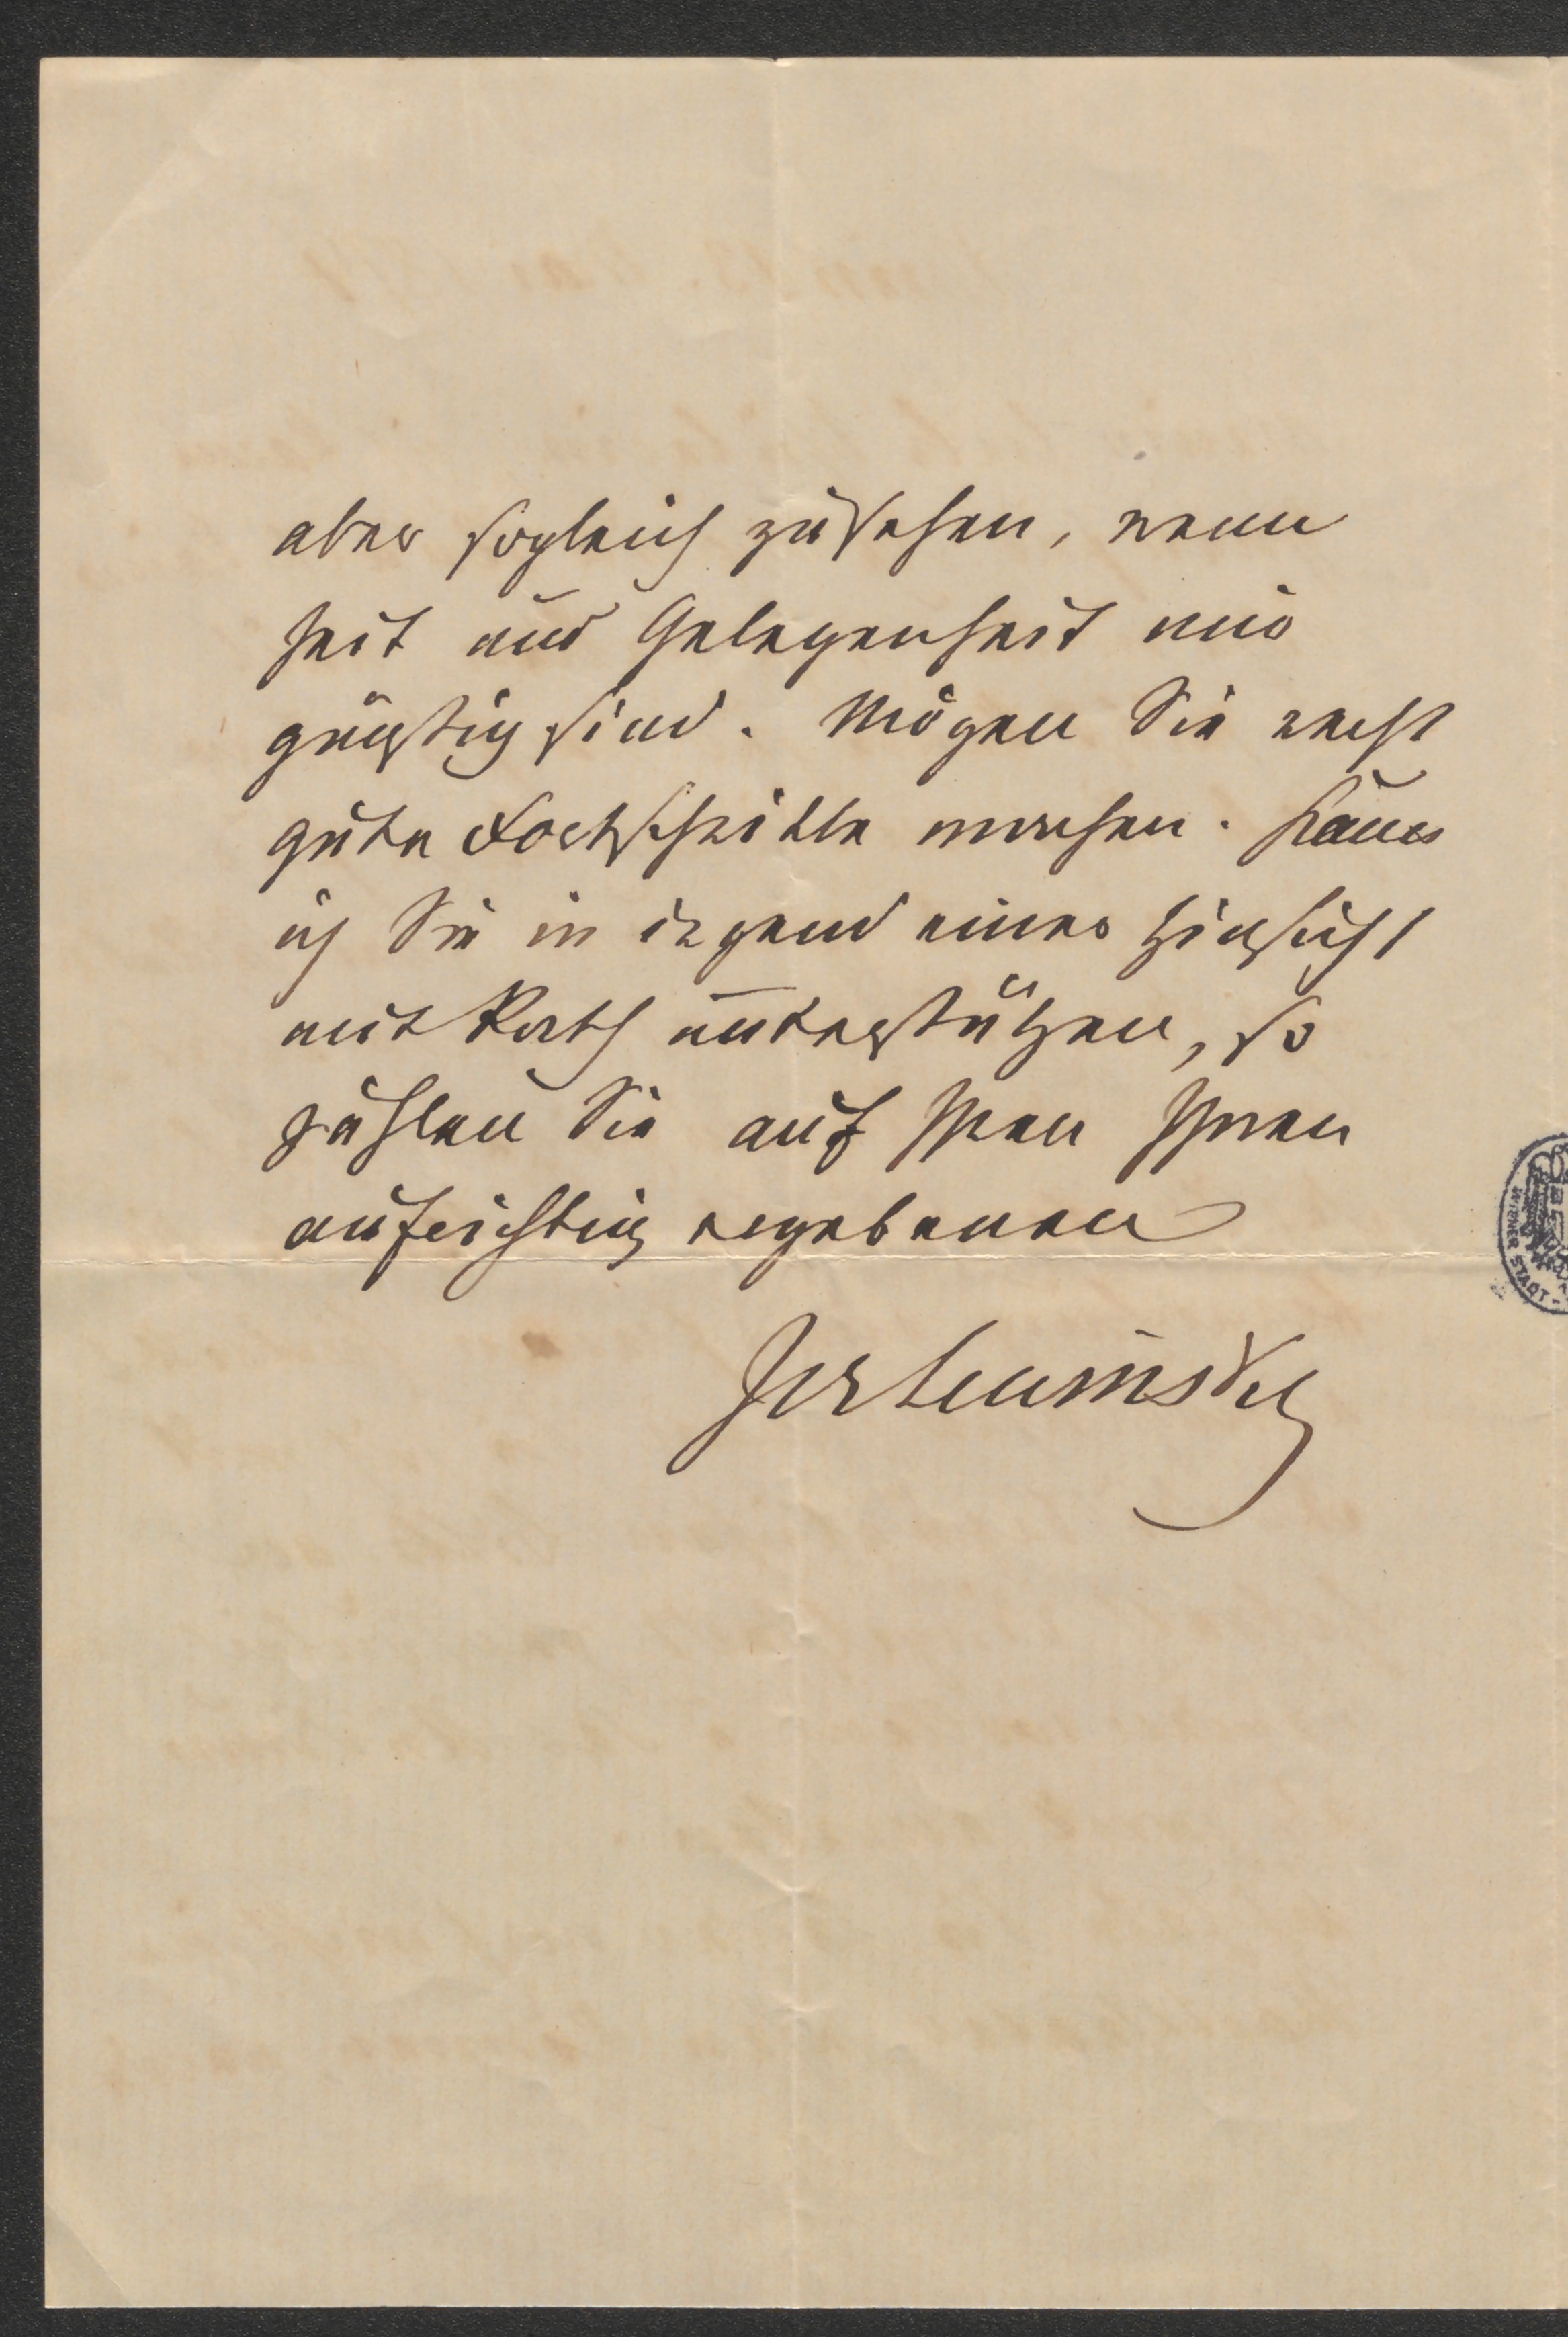 aber sogleich zusehen, wenn
Zeit und Gelegenheit mir
günstig sind. Mögen Sie recht
gute Fortschritte machen. Kann
ich Sie in irgend einer Hinsicht
mit Rath unterstützen, so
zählen Sie auf Ihren Ihnen
aufrichtig ergebenen
JLewinsky
WIENER STADT-